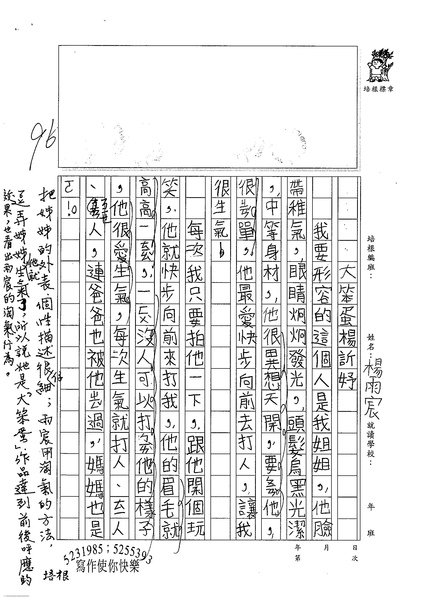 培根標章
培根編班：
姓名：楊雨宸
就讀學校：
年 班
日 次
月
年 第
大笨蛋楊訢妤
我要形容的這個人是我姐姐，他臉
帶稚氣，眼睛炯炯發光，頭髮烏黑光潔
，中等身材，他很異想天開，要
他，
很，他最愛快步向前去打人，讓我
很生氣。
每次我只要拍他一下，跟他開個玩
笑，他就快步向前來打我，他的眉毛就
高高一，一反沒人可以打他的樣子
，他很愛生氣，每次生氣就打人、ㄊ人
、罵人，連爸爸也被他ㄊ過，媽媽也是
ㄛ！。
96
把姊姊的外表、個性描述很仔細；雨宸用淘氣的方法，
去弄姊姊生氣，所以說她是「大笨蛋」，作品達到前後呼應的
效果，也看出雨宸的淘氣行為。
5231985；5255393
寫作使你快樂
培根